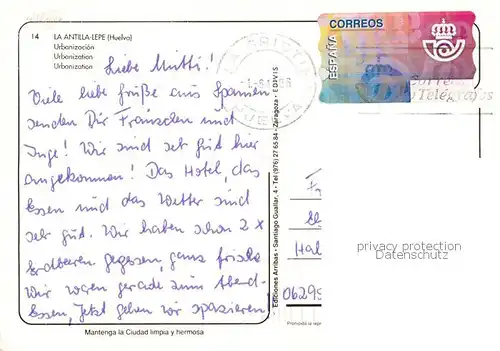 14 LA ANTILLA-LEPE (Huelva)
Urbanización
Urbanization
Urbanization
Liebe Mutti!
Viele liebe Grüße aus Spanien
senden Dir Fränzchen und
Inge! Wir sind sehr gut hier
angekommen! Das Hotel, das
Essen und das Wetter sind
sehr gut. Wir haben schon 2 x
Erdbeeren gegessen, ganz frisch.
Wir waren gerade zum Abend-
Essen, jetzt gehen wir spazieren.
Mantenga la Ciudad limpia y hermosa
Ediciones Arribas - Santiago Guallar, 4 - Tel (976) 27 65 84 - Zaragoza - EDIVIS
CORREOS
ESPAÑA
HUELVA
Correos
Telégrafos
Hal
0629
privacy protection
Datenschutz